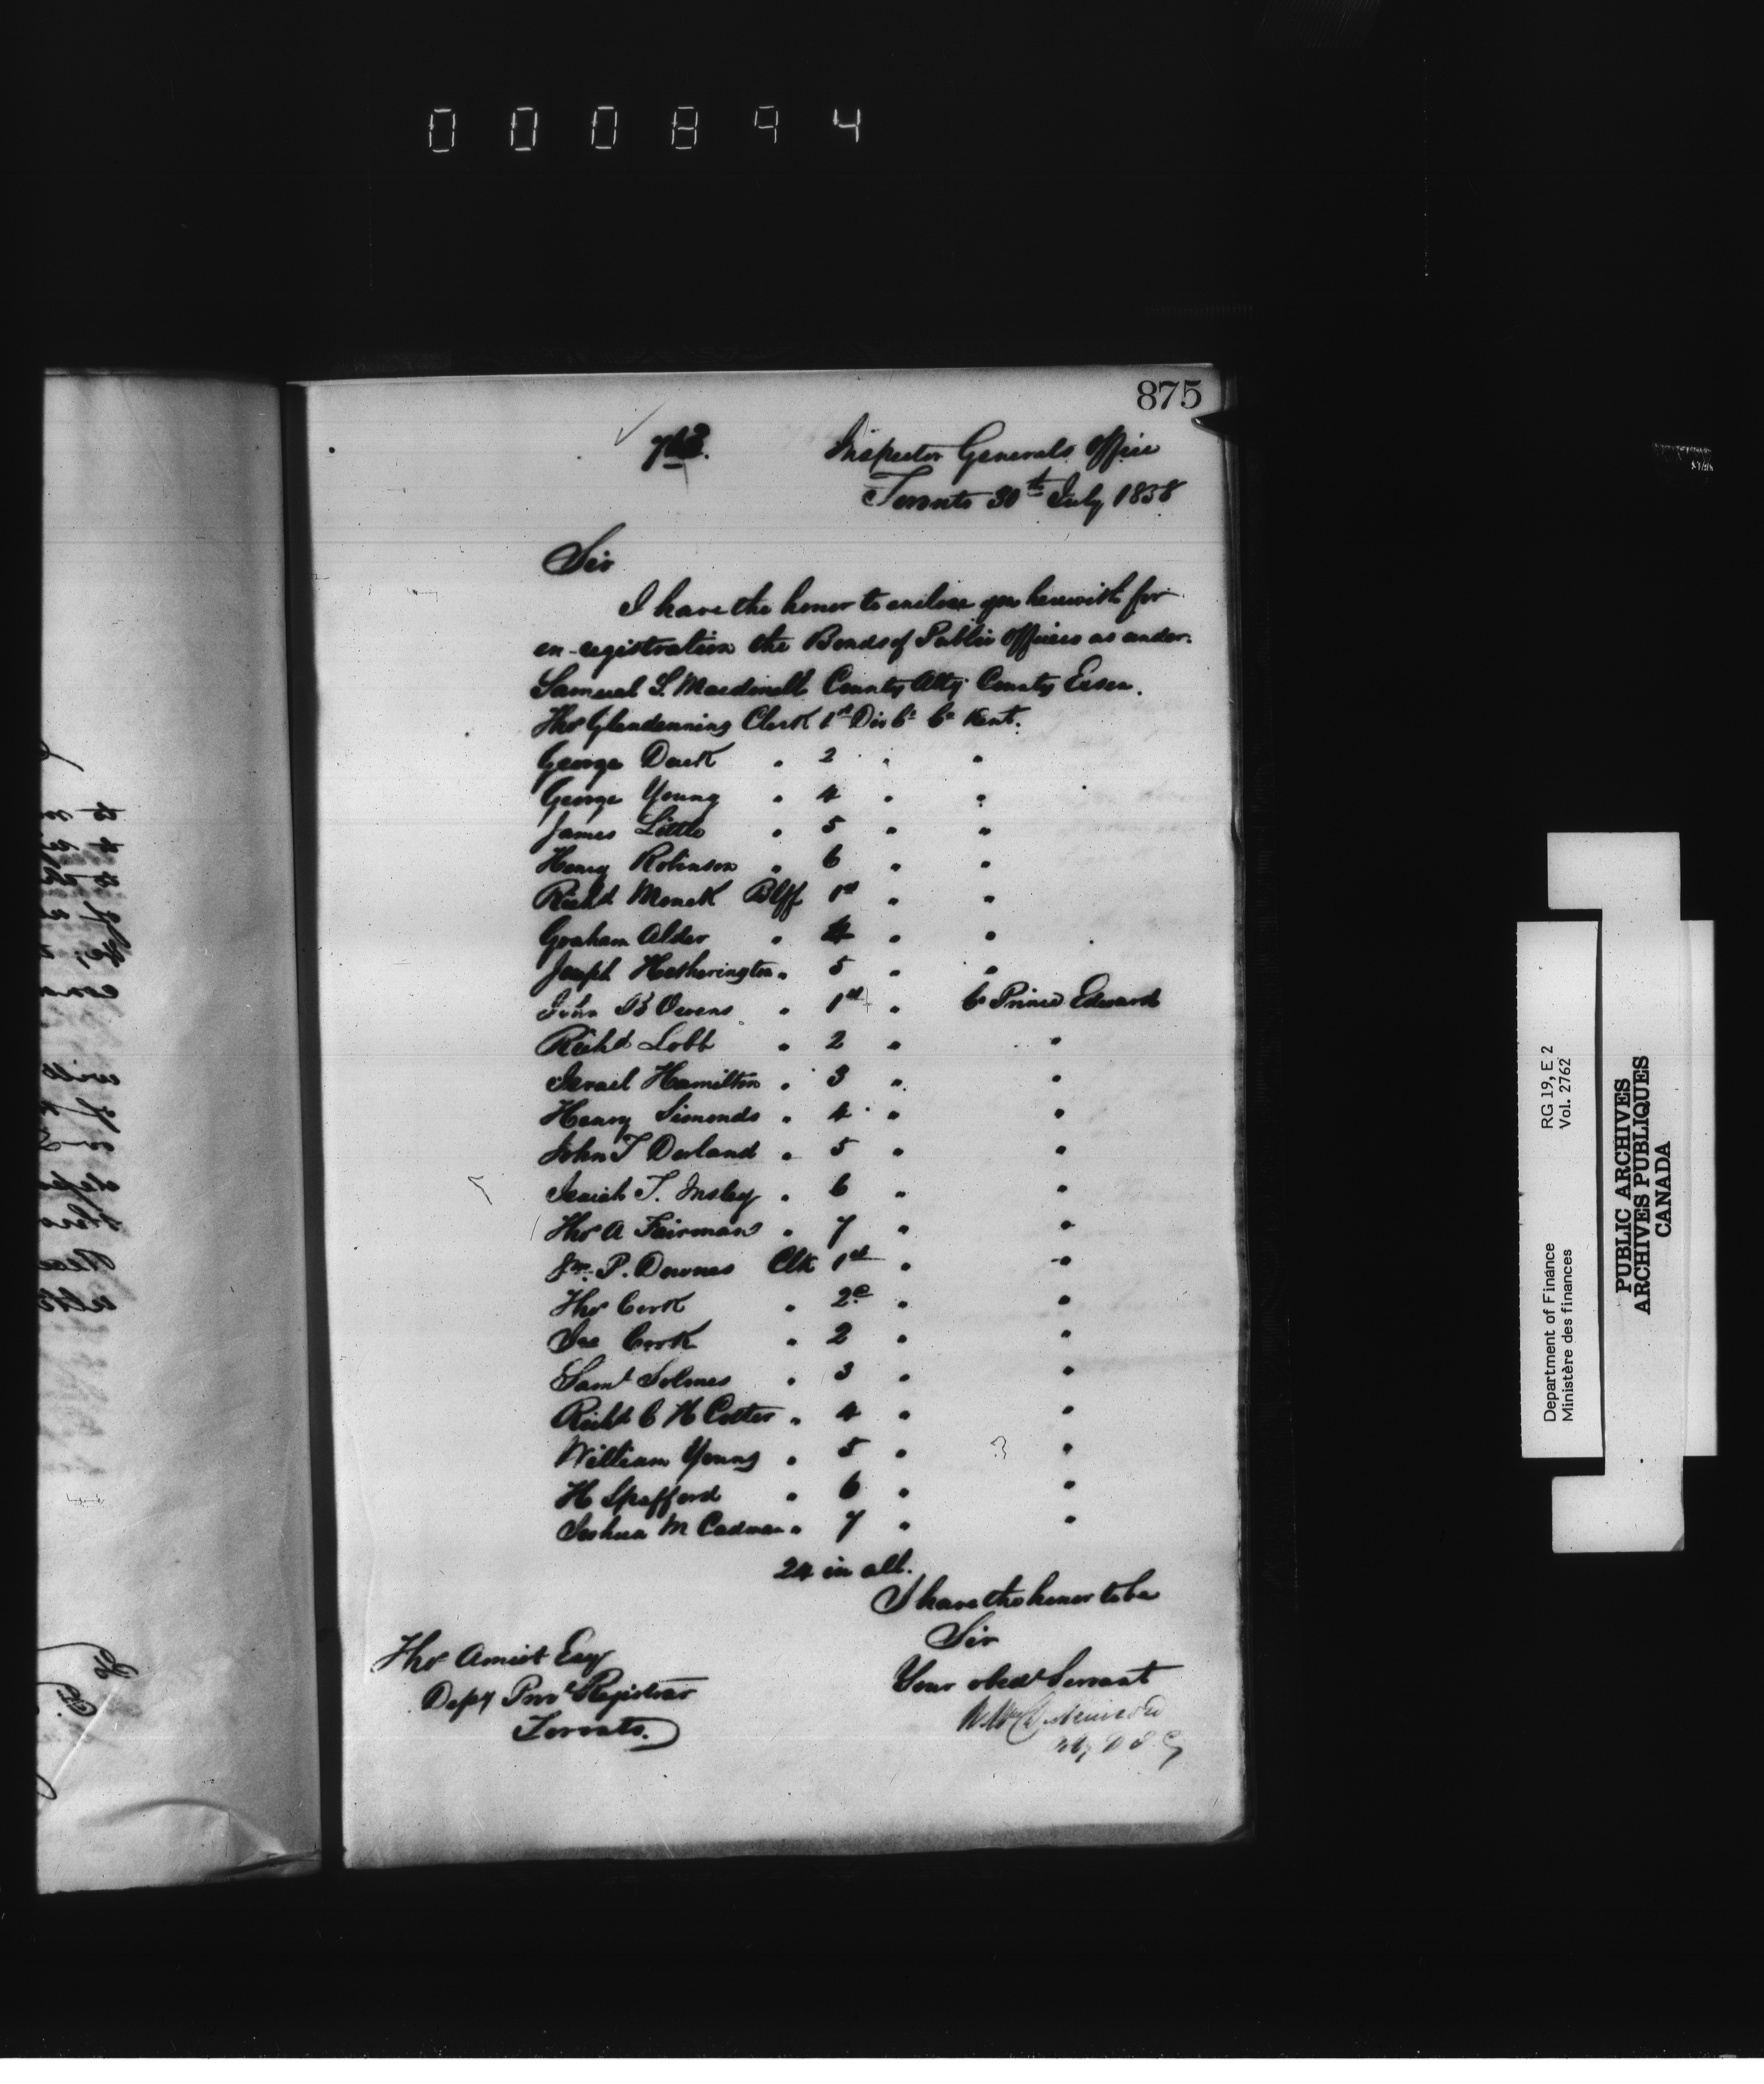 000894
875
763.
Inspector Generals Office
Toronto 30th July 1858
Sir
I have the honor to enclose you herewith for
en-registration the Bonds of Public Officers as under.
Samuel S. Macdonell County Atty County Essex.
Thos Glendenning Clerk 1st Div Ct Co Kent.
George Duck " 2 " "
George Young " 4 " "
James Little " 5 " "
Henry Robinson " 6 " "
Richd Monck Blff 1st " "
Graham Alder " 4 " "
Joseph Hetherington " 5 " "
John B Owens " 1st " Co Prince Edward
Richd Lobb " 2 " "
Israel Hamilton " 3 " "
Henry Simonds " 4 " "
John T Dorland " 5 " "
Isaiah T. Insley " 6 " "
Thos A Fairman " 7 " "
P. Downes Clk 1st " "
Thos Cork " 2d " "
Cook " 2 " "
Saml Solmes " 3 " "
Richd C H Cotter " 4 " "
William Young " 5 " "
H Spafford " 6 " "
Joshua M Cadman " 7 " "
24 in all.
I have the honor to be
Sir
Your obedt Servant
Thos Amiot Esqr
Depy Provl Registrar
Toronto.
Department of Finance RG 19, E 2
Ministère des finances Vol. 2762
PUBLIC ARCHIVES
ARCHIVES PUBLIQUES
CANADA